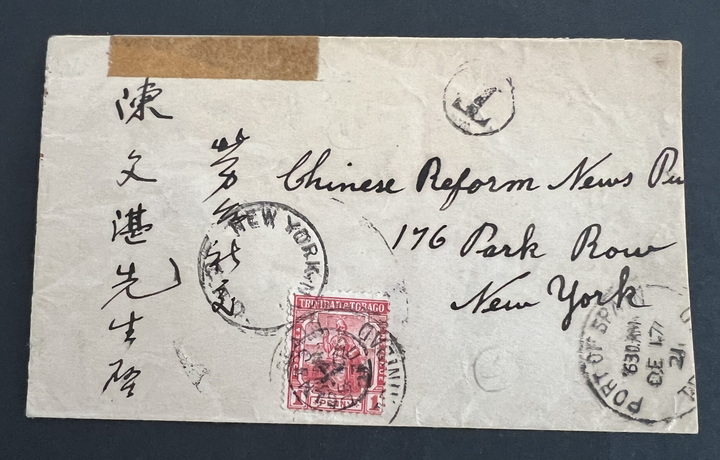 陳文湛先生啓
勞
社交
Chinese Reform News Pu
176 Park Row
New York
T
NEW YORK
TRINIDAD & TOBAGO
1
PENNY
1
PORT OF SP
630 AM
DE 17
21
TRINIDAD